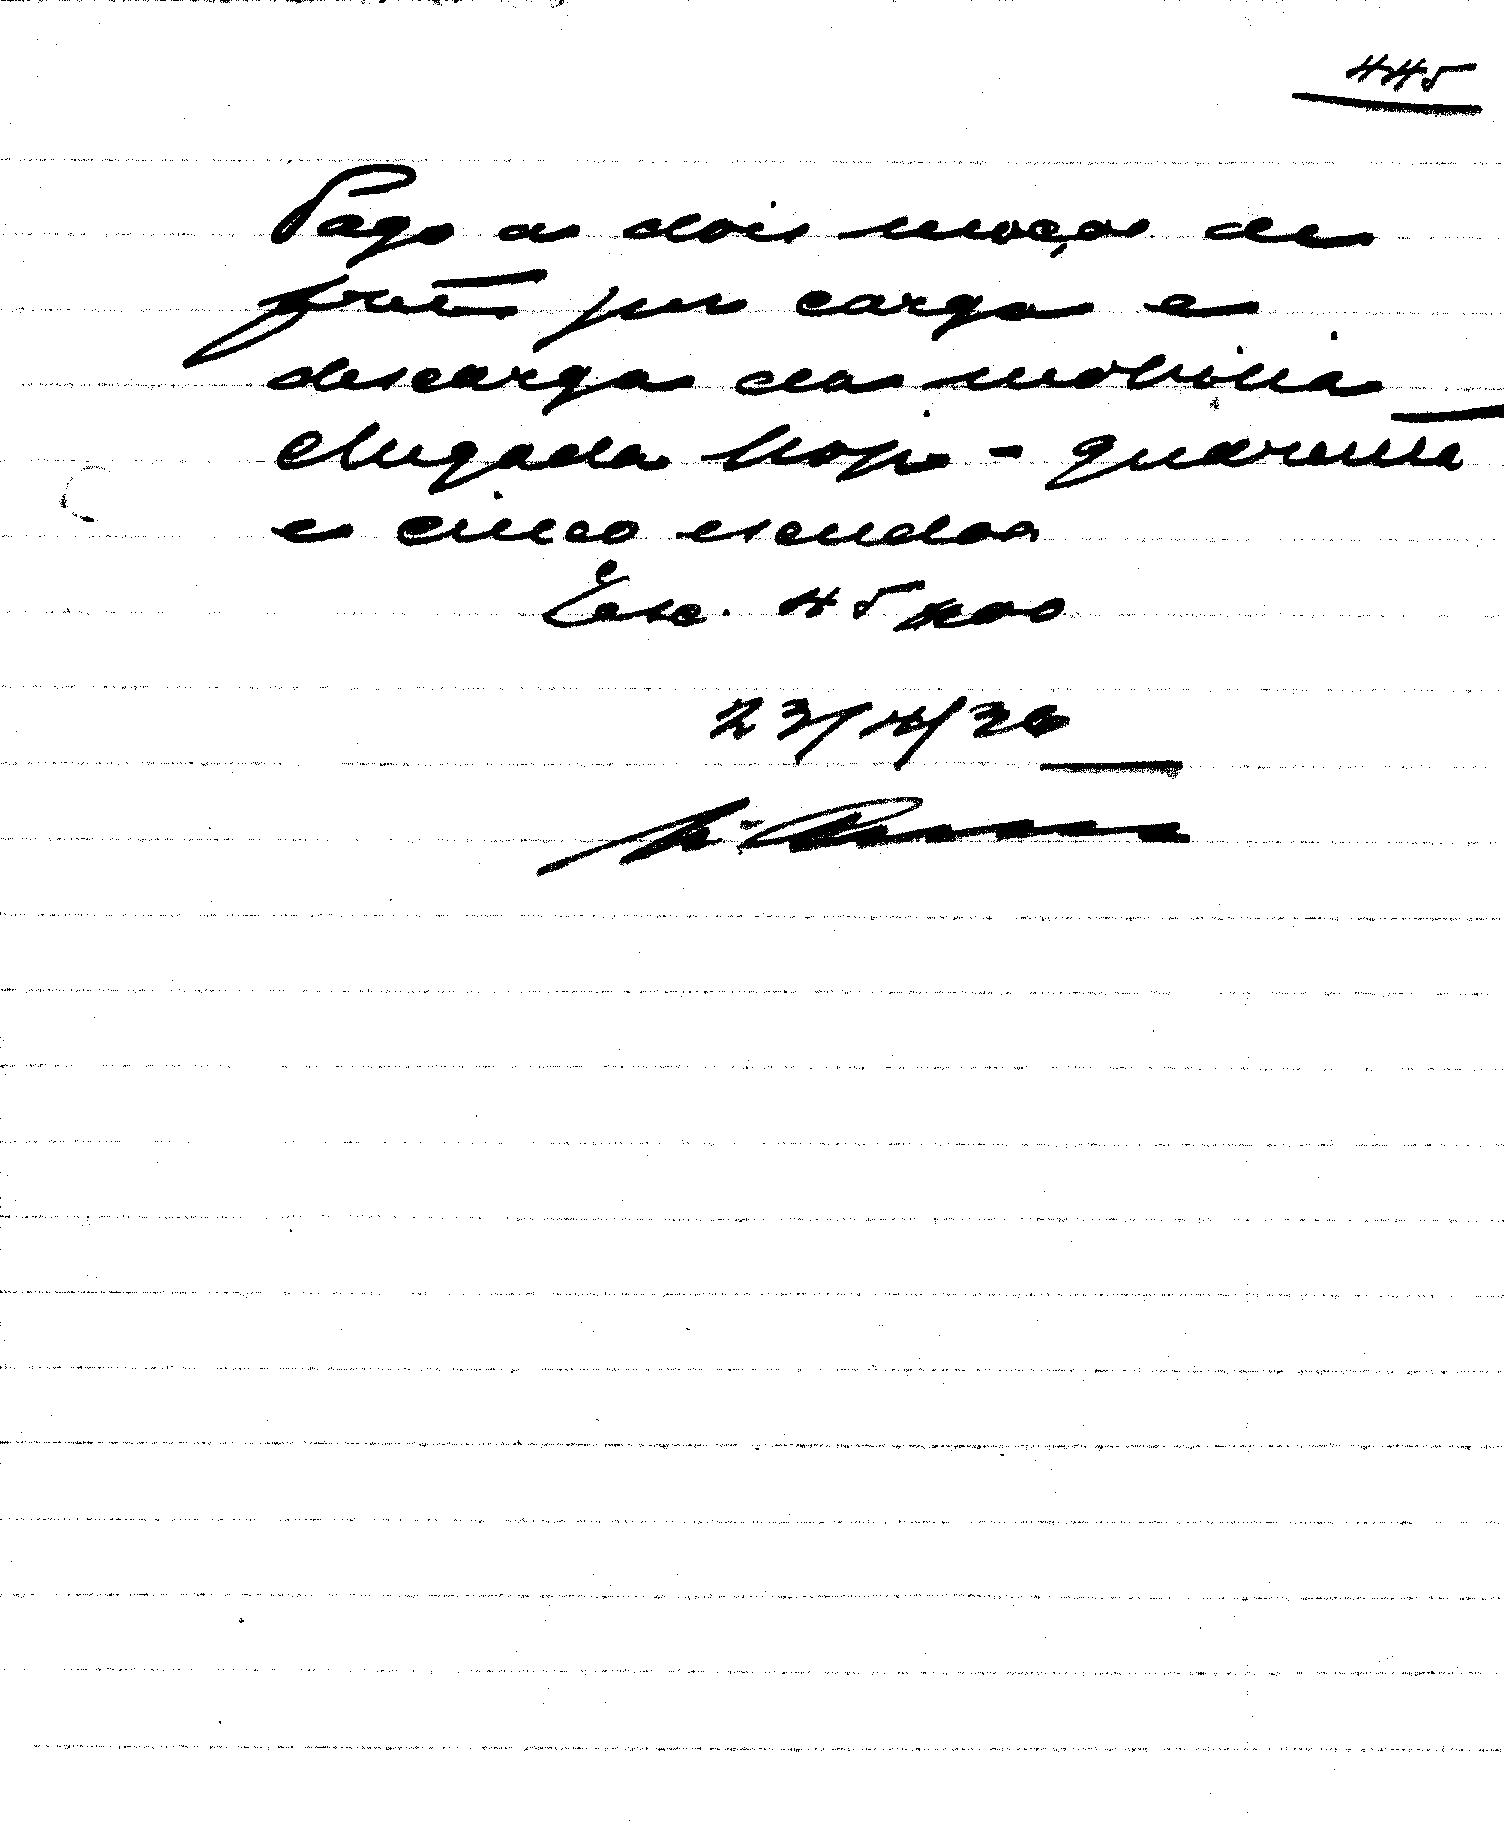 445
Pago a dois moços de
frete por carga e
descarga da mobilia
chegada hoje - quarenta
e cinco escudos
Esc. 45$00
23/4/36